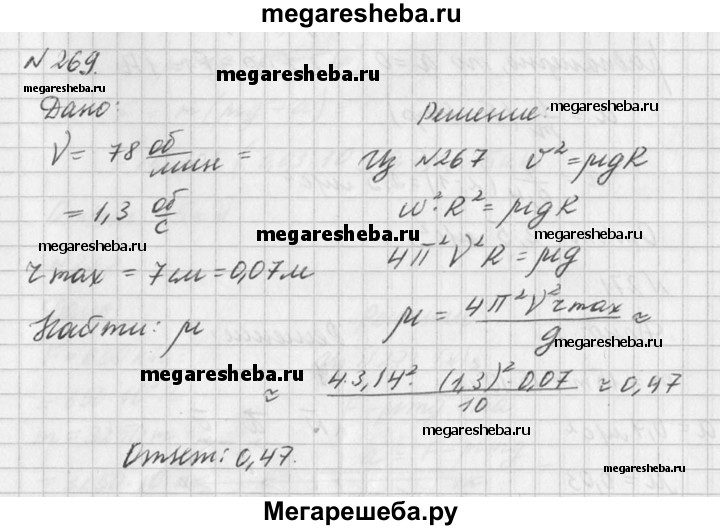 megaresheba.ru
№269.
megaresheba.ru
megaresheba.ru
Дано:
ν = 78 об/мин =
= 1,3 об/с
megaresheba.ru
r max = 7 см = 0,07 м
Найти: μ
Решение:
megaresheba.ru
Из №267 v² = μgR
megaresheba.ru
ω²·R² = μgR
megaresheba.ru
4π²ν²R = μg
megaresheba.ru
μ = 4π²ν² r max / g ≈
megaresheba.ru
megaresheba.ru
≈ 4·3,14²·(1,3)²·0,07 / 10 ≈ 0,47
megaresheba.ru
Ответ: 0,47.
megaresheba.ru
Мегарешеба.ру